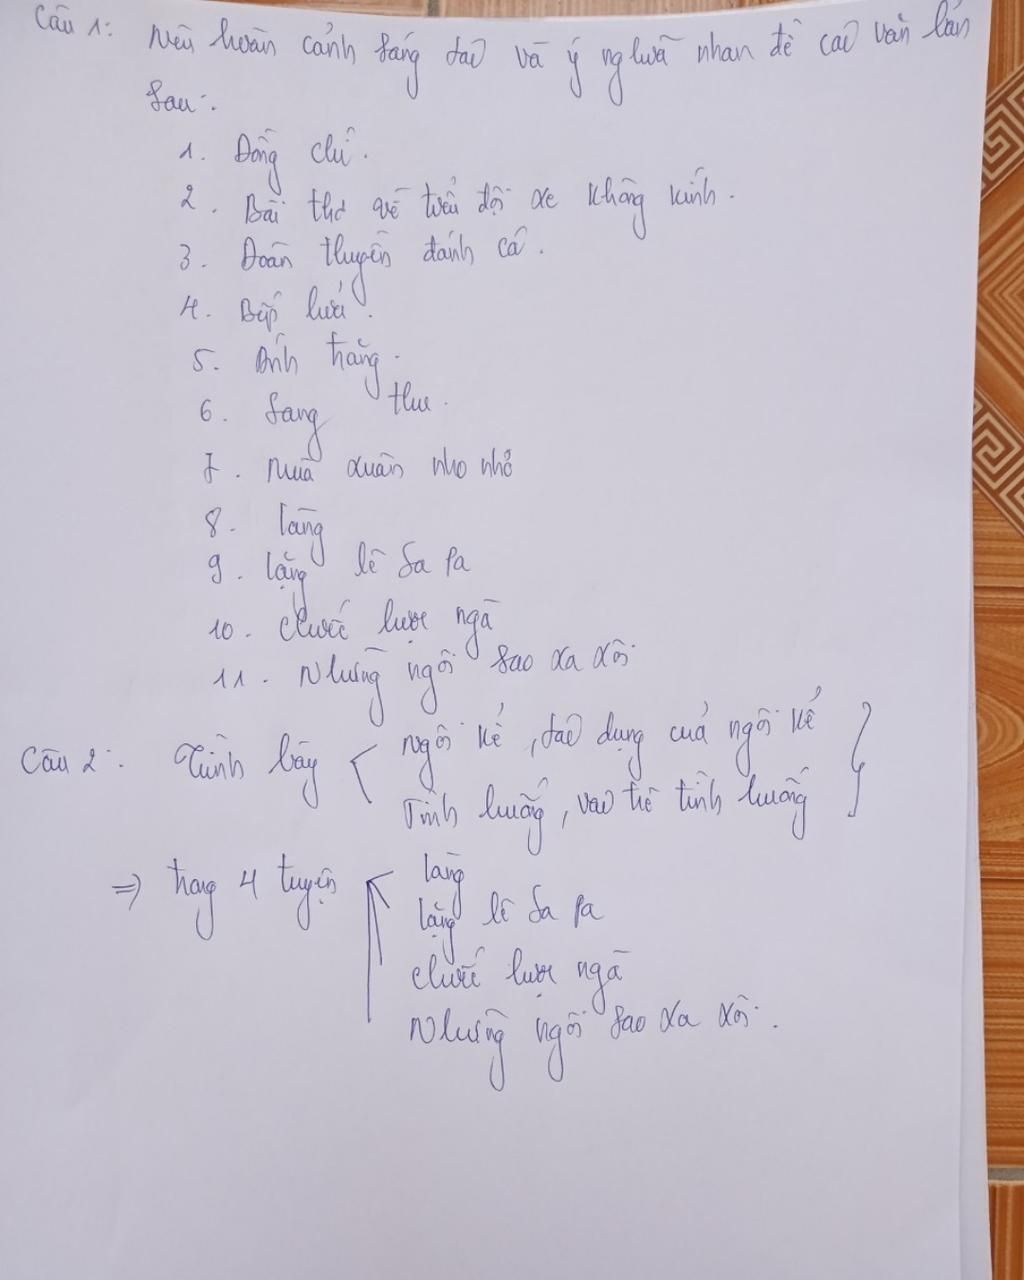 Câu 1: Nêu hoàn cảnh sáng tác và ý nghĩa nhan đề các văn bản
sau:
1. Đồng chí.
2. Bài thơ về tiểu đội xe không kính.
3. Đoàn thuyền đánh cá.
4. Bếp lửa.
5. Ánh trăng.
6. Sang thu.
7. Mùa xuân nho nhỏ
8. Làng
9. Lặng lẽ Sa Pa
10. Chiếc lược ngà
11. Những ngôi sao xa xôi.
Câu 2: Trình bày ngôi kể, tác dụng của ngôi kể
Tình huống, vai trò tình huống
=> trong 4 truyện
Làng
Lặng lẽ Sa Pa
Chiếc lược ngà
Những ngôi sao xa xôi.